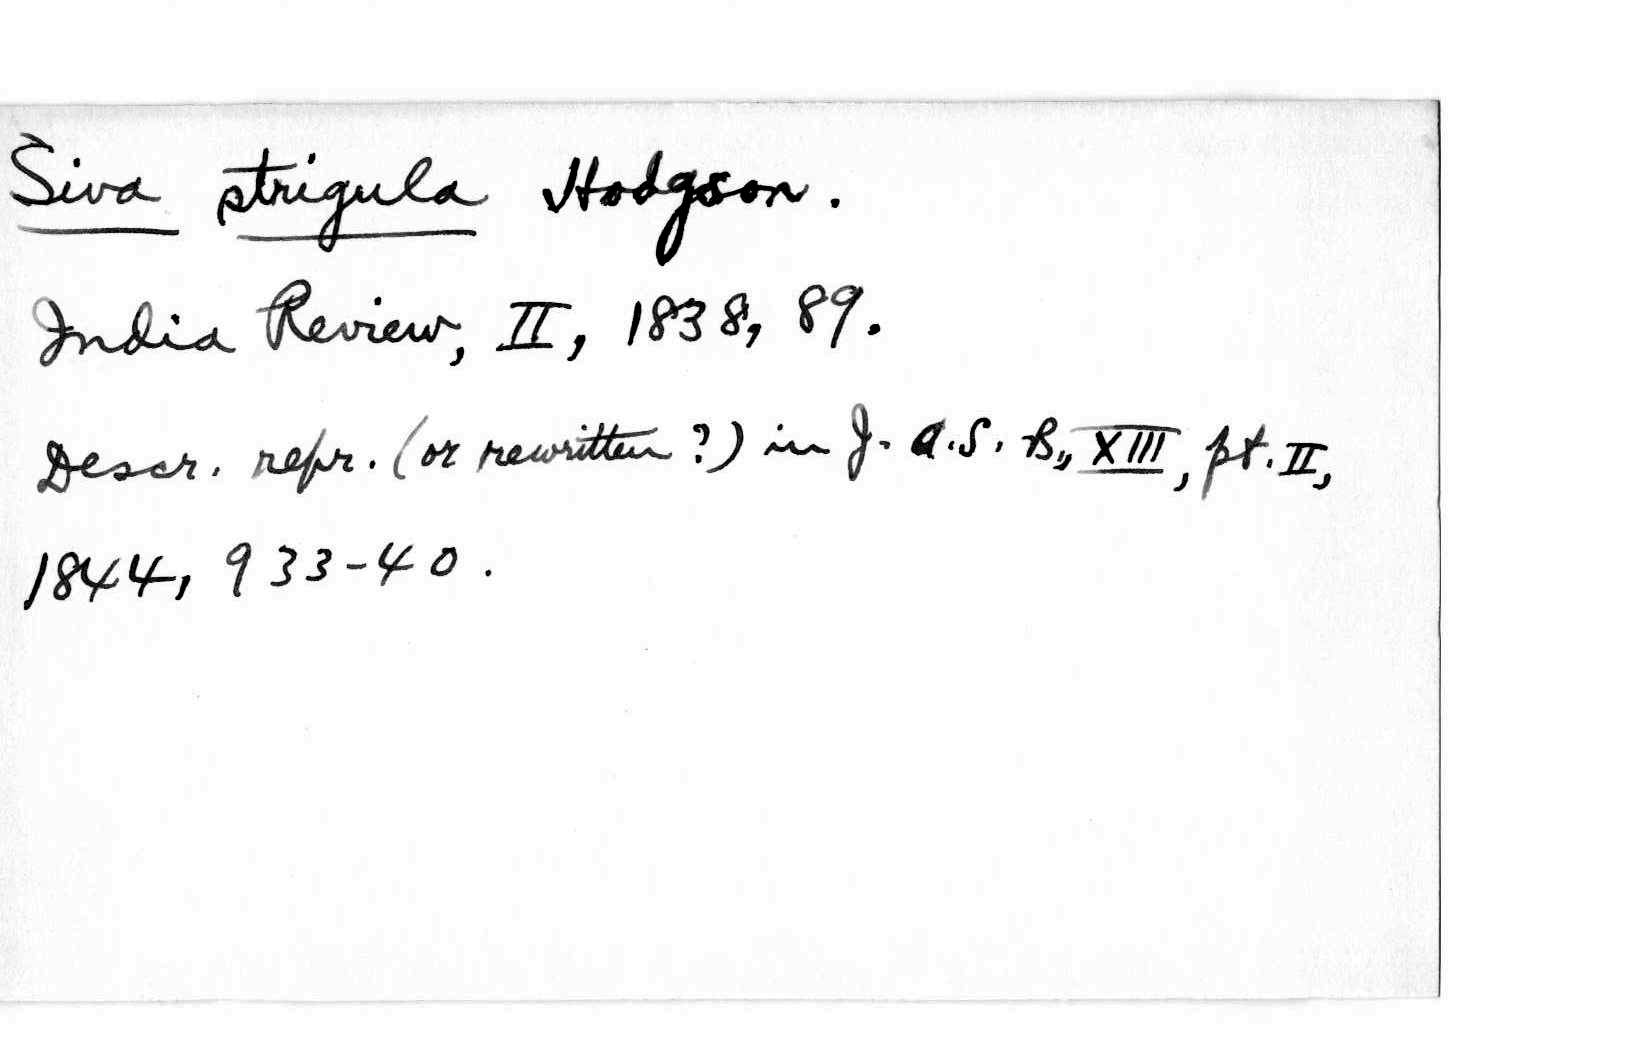 Siva strigula Hodgson.
India Review, II, 1838, 89.
Descr. repr. (or rewritten?) in J. A. S. B., XIII, pt. II,
1844, 933-40.